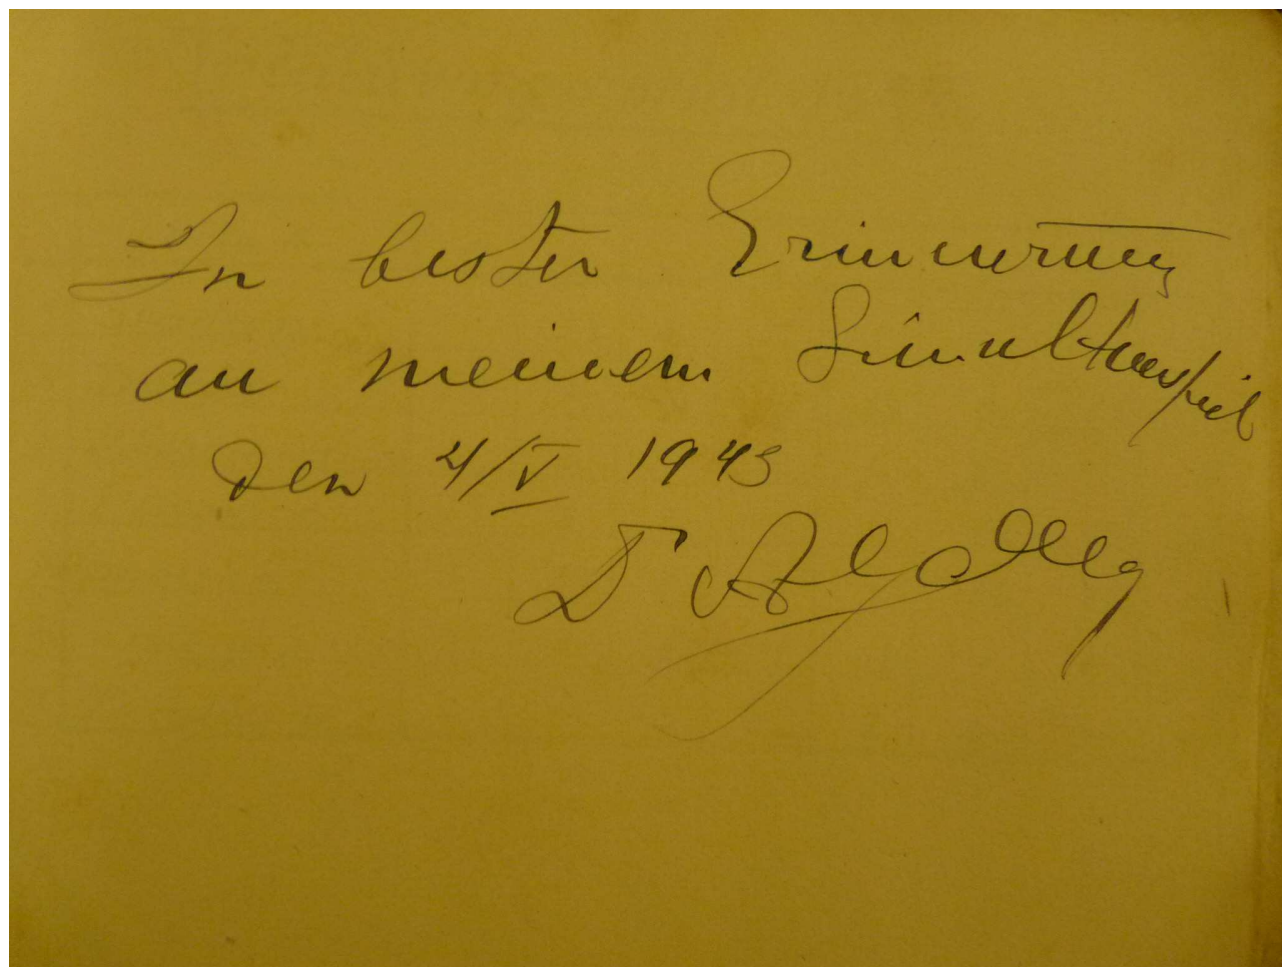 In bester Erinnerung
an meinem Simultanspiel
den 4/V 1943
Dr